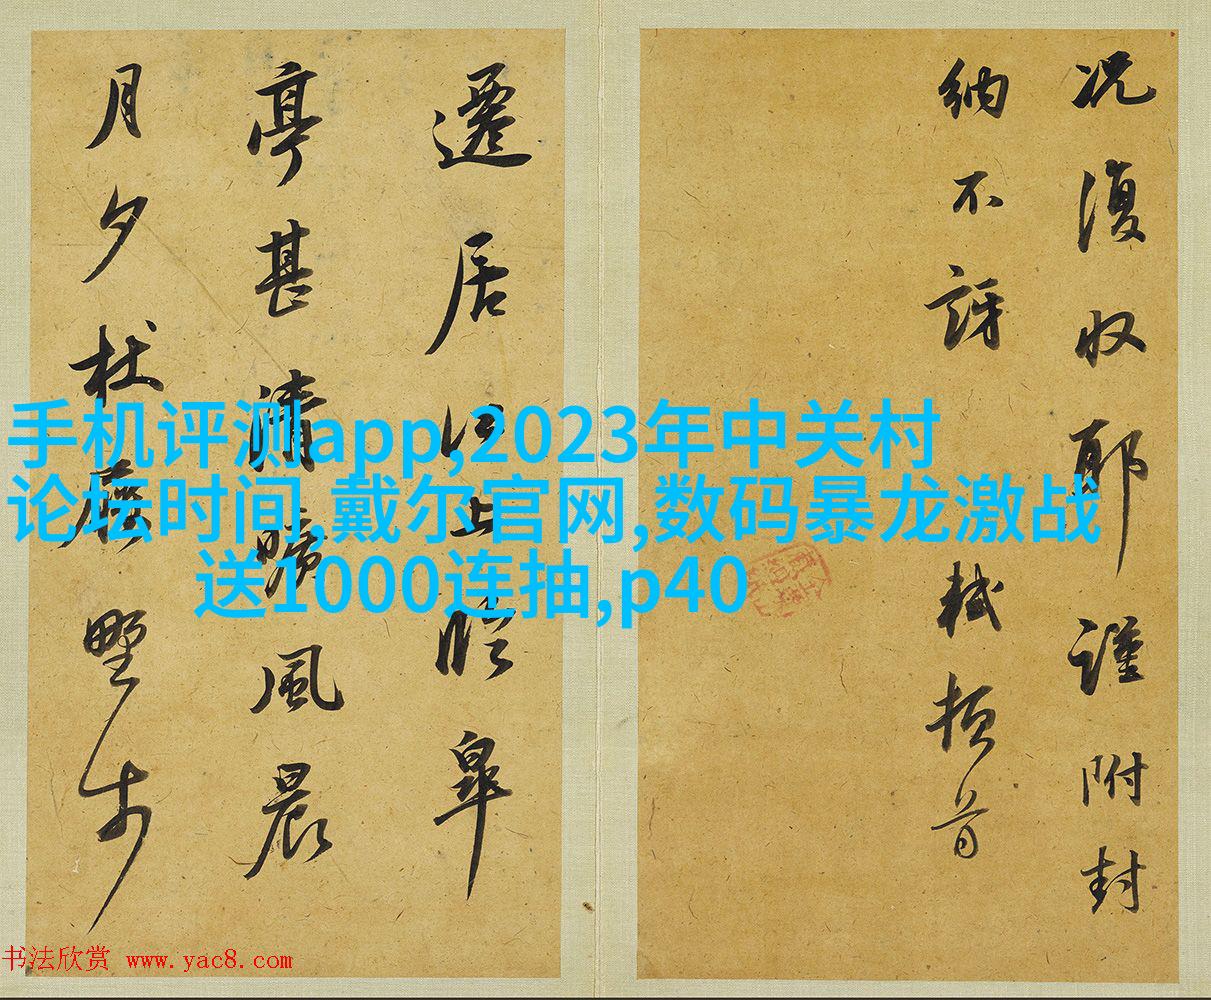 况復收耶謹附封
納不訝 軾頓首
遷居江上臨皐
亭甚清曠風晨
月夕杖履野步
手机评测app,2023年中关村
论坛时间,戴尔官网,数码暴龙激战
送1000连抽,p40
书法欣赏 www.yac8.com